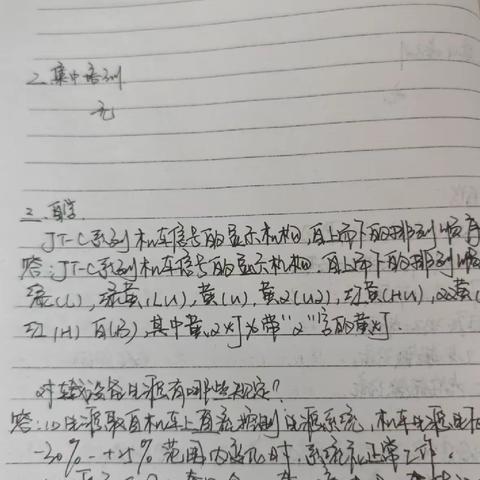 二、集中培训
无
三、自学
JT-C系列机车信号的显示机构,自上而下的排列顺序
答:JT-C系列机车信号的显示机构,自上而下的排列顺
绿(L),绿黄(LU),黄(U),黄2(U2),红黄(HU),双黄(
红(H) 白(B),其中黄2灯为带“2”字的黄灯.
对车载设备电源有哪些规定?
答:(1)电源取自机车上直流控制电源系统,机车电源电压
-20%~+25%范围内变化时,系统应正常工作.